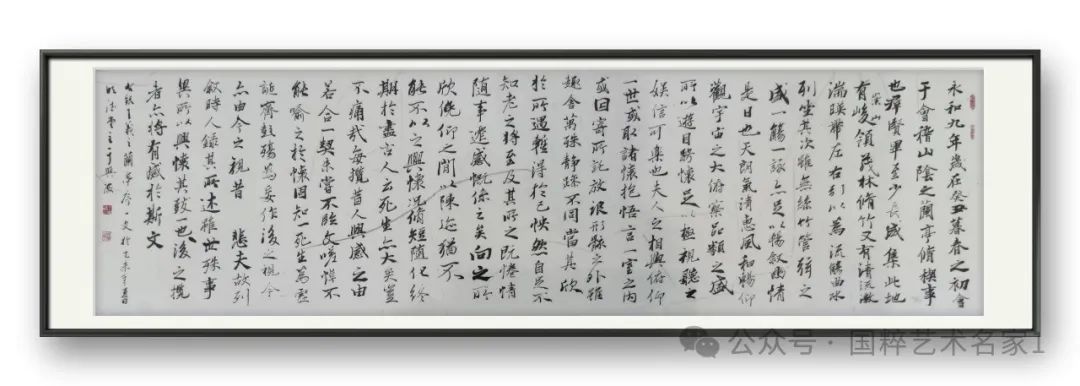 永和九年歲在癸丑暮春之初會
于會稽山陰之蘭亭脩稧事
也羣賢畢至少長咸集此地
有崇山峻領茂林脩竹又有清流激
湍暎帶左右引以為流觴曲水
列坐其次雖無絲竹管弦之
盛一觴一詠亦足以暢敘幽情
是日也天朗氣清惠風和暢仰
觀宇宙之大俯察品類之盛
所以遊目騁懷足以極視聽之
娛信可樂也夫人之相與俯仰
一世或取諸懷抱悟言一室之內
或因寄所託放浪形骸之外雖
趣舍萬殊靜躁不同當其欣
於所遇暫得於己怏然自足不
知老之將至及其所之既惓情
隨事遷感慨係之矣向之所
欣俛仰之間以陳迹猶不
能不以之興懷況脩短隨化終
期於盡古人云死生亦大矣豈
不痛哉每攬昔人興感之由
若合一契未嘗不臨文嗟悼不
能喻之於懷固知一死生為虛
誕齊彭殤為妄作後之視今
亦由今之視昔 悲夫故列
敘時人錄其所述雖世殊事
異所以興懷其致一也後之攬
者亦將有感於斯文
王羲之蘭亭序一文於乙未年春
公众号·国粹艺术名家1